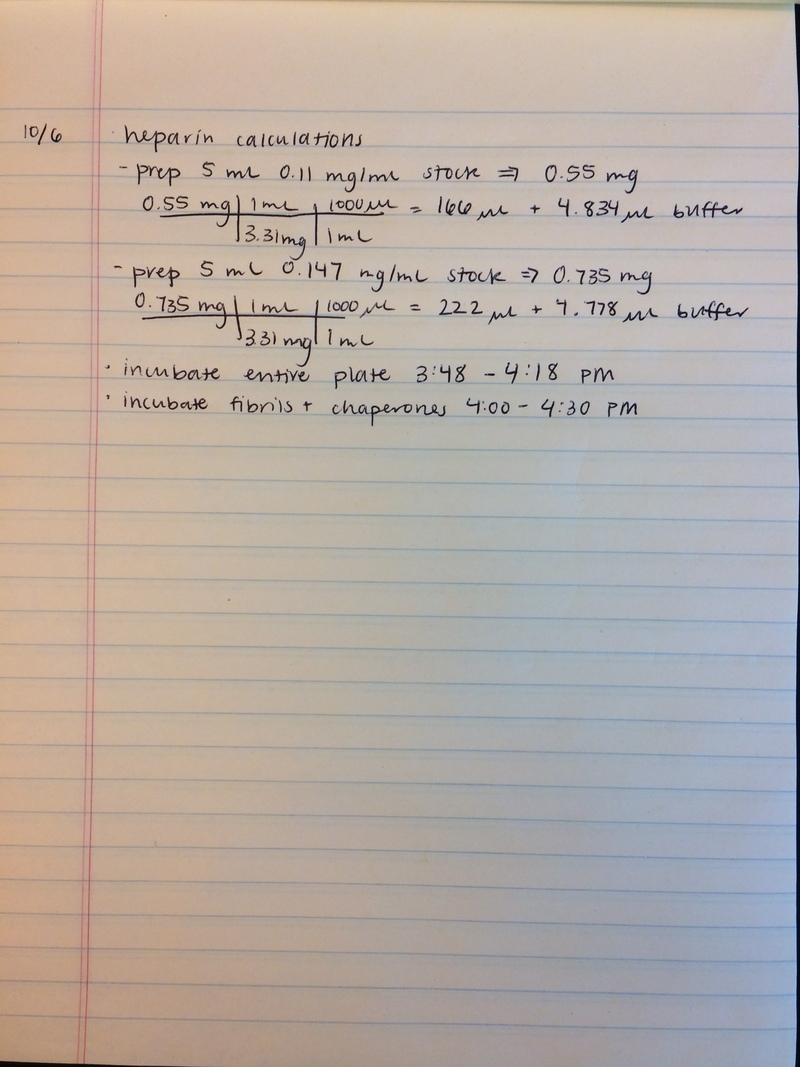 10/6 · heparin calculations
- prep 5 mL 0.11 mg/mL stock ⇒ 0.55 mg
0.55 mg | 1 mL | 1000 μL = 166 μL + 4.834 μL buffer
| 3.31 mg | 1 mL
- prep 5 mL 0.147 mg/mL stock ⇒ 0.735 mg
0.735 mg | 1 mL | 1000 μL = 222 μL + 4.778 μL buffer
| 3.31 mg | 1 mL
· incubate entire plate 3:48 - 4:18 PM
· incubate fibrils + chaperones 4:00 - 4:30 PM